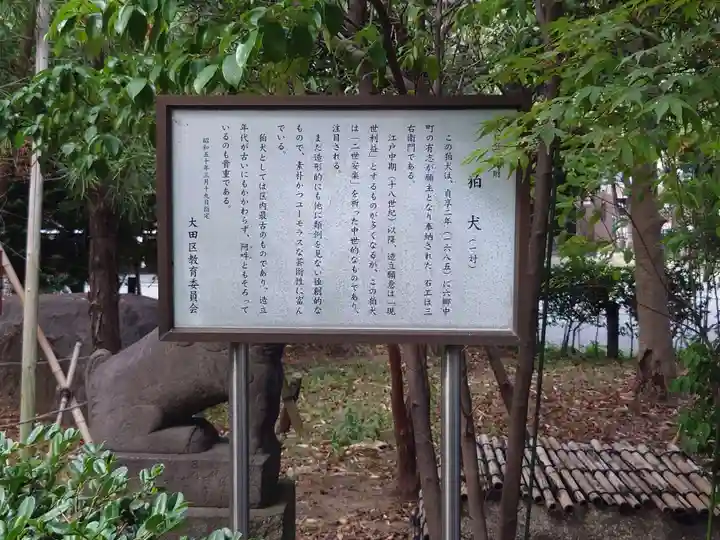 財
狛犬(一対)
この狛犬は、貞享二年(一六八五)に六郷中
町の有志が願主となり奉納された。石工は三
右衛門である。
江戸中期(十八世紀)以降、造立願意は「現
世利益」とするものが多くなるが、この狛犬
は「二世安楽」を祈った中世的なものであり、
注目される。
また造形的にも他に類例を見ない独創的な
もので、素朴かつユーモラスな芸術性に富ん
でいる。
狛犬としては区内最古のものであり、造立
年代が古いにもかかわらず、阿吽ともそろって
いるのも貴重である。
昭和五十年三月十九日指定
大田区教育委員会